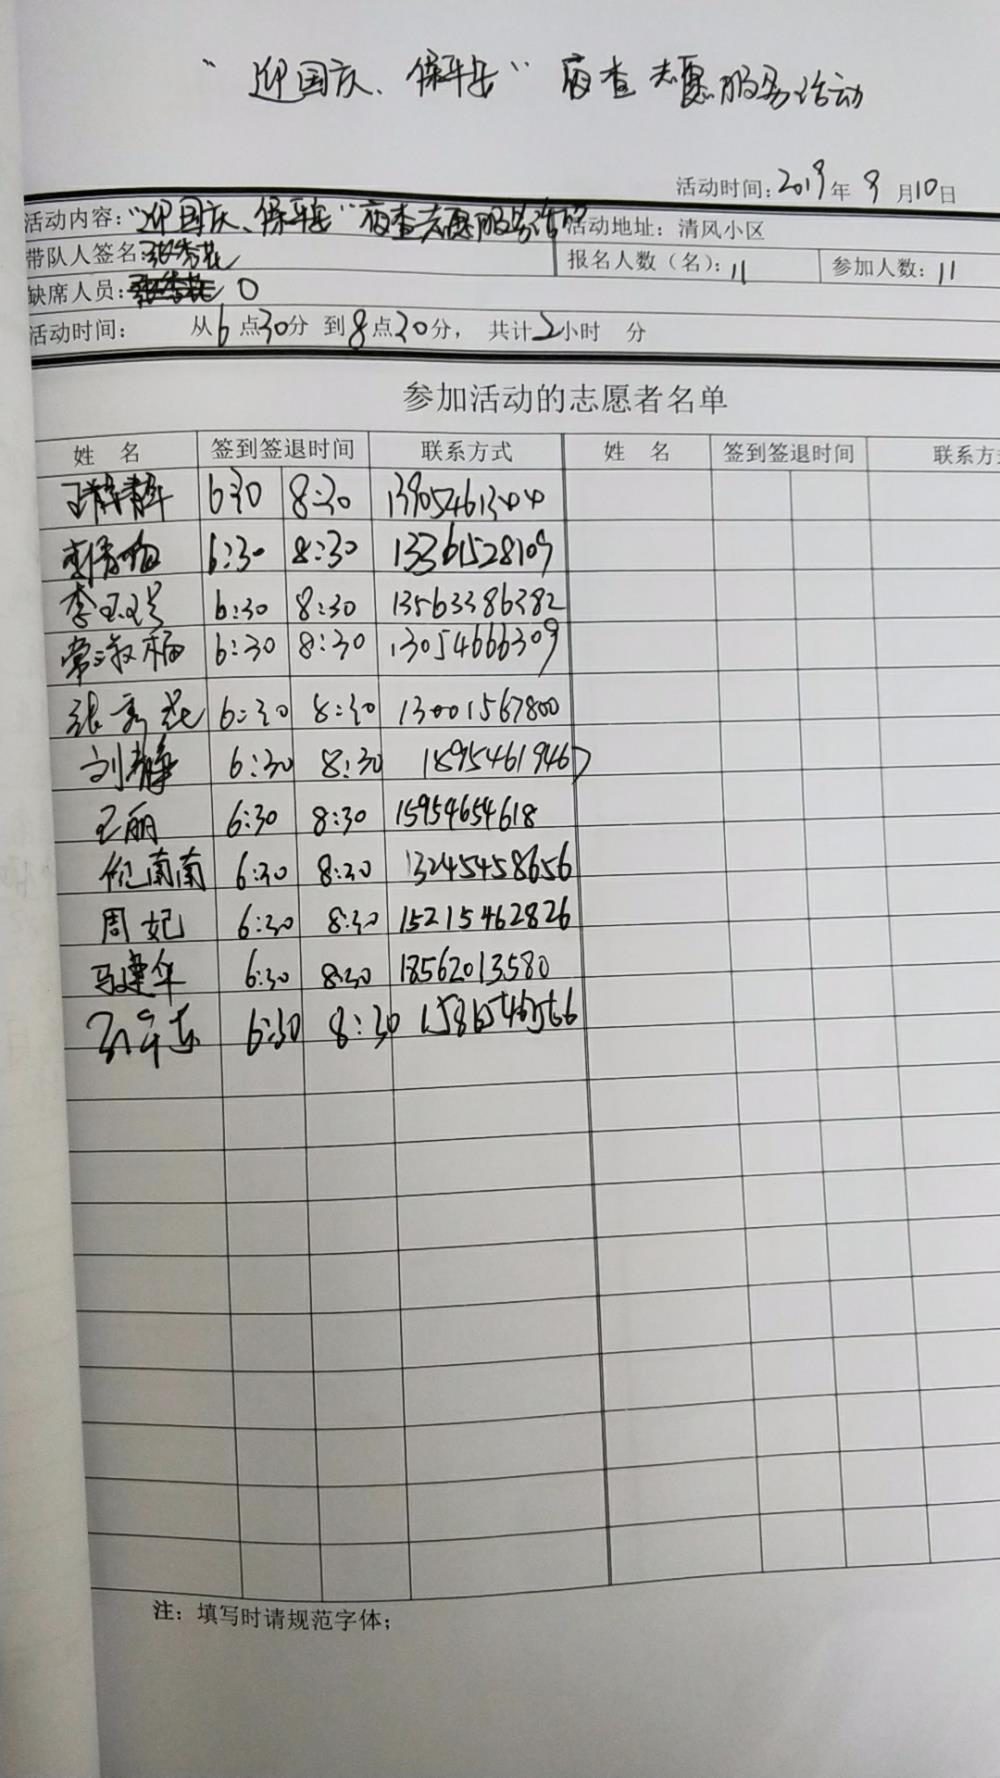 “迎国庆、保平安”夜查志愿服务活动
活动时间：2019年9月10日
活动内容：“迎国庆、保平安”夜查志愿服务活动 活动地址：清风小区
带队人签名：张秀花 报名人数（名）：11 参加人数：11
缺席人员：0
活动时间： 从6点30分 到8点20分， 共计2小时 分
参加活动的志愿者名单
姓 名 签到签退时间 联系方式 姓 名 签到签退时间 联系方
王静静 6:30 8:30
6:30 8:30 13361528109
李 6:30 8:30 13563386382
常淑梅 6:30 8:30 13054666309
张秀花 6:30 8:30 13001567800
刘静 6:30 8:30 18954619467
王丽 6:30 8:30 15954654618
倪南南 6:30 8:30 13245458656
周妃 6:30 8:30 15215462826
马建华 6:30 8:30 18562013580
6:30 8:30
注：填写时请规范字体；